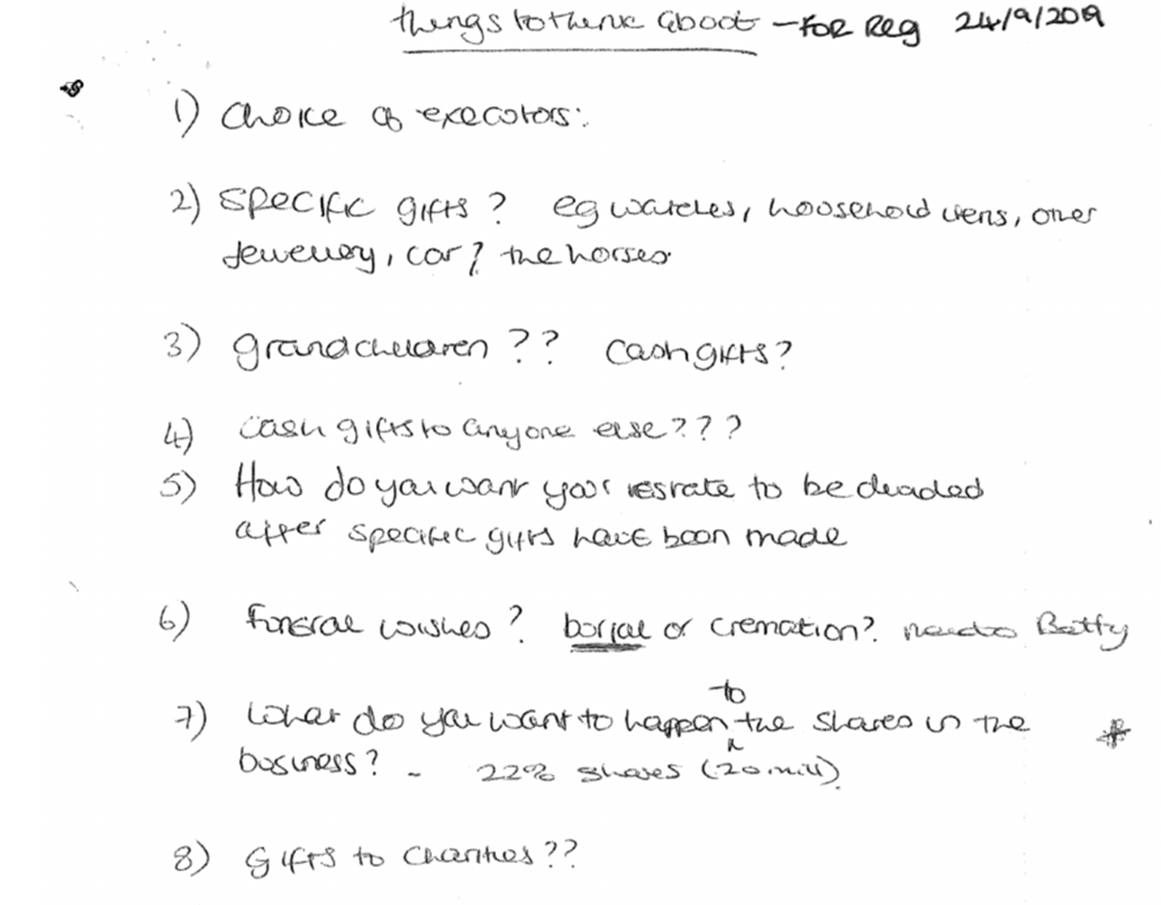 things to think about - FOR Reg 24/9/2019
1) Choice of executors:
2) Specific gifts? eg watches, household items, other
jewellery, car? the horses.
3) grandchildren?? Cash gifts?
4) cash gifts to anyone else???
5) How do you want your estate to be divided
after specific gifts have been made
6) funeral wishes? burial or cremation? Betty
7) What do you want to happen to the shares in the
business? - 22% shares (20 mill)
8) Gifts to Charities??